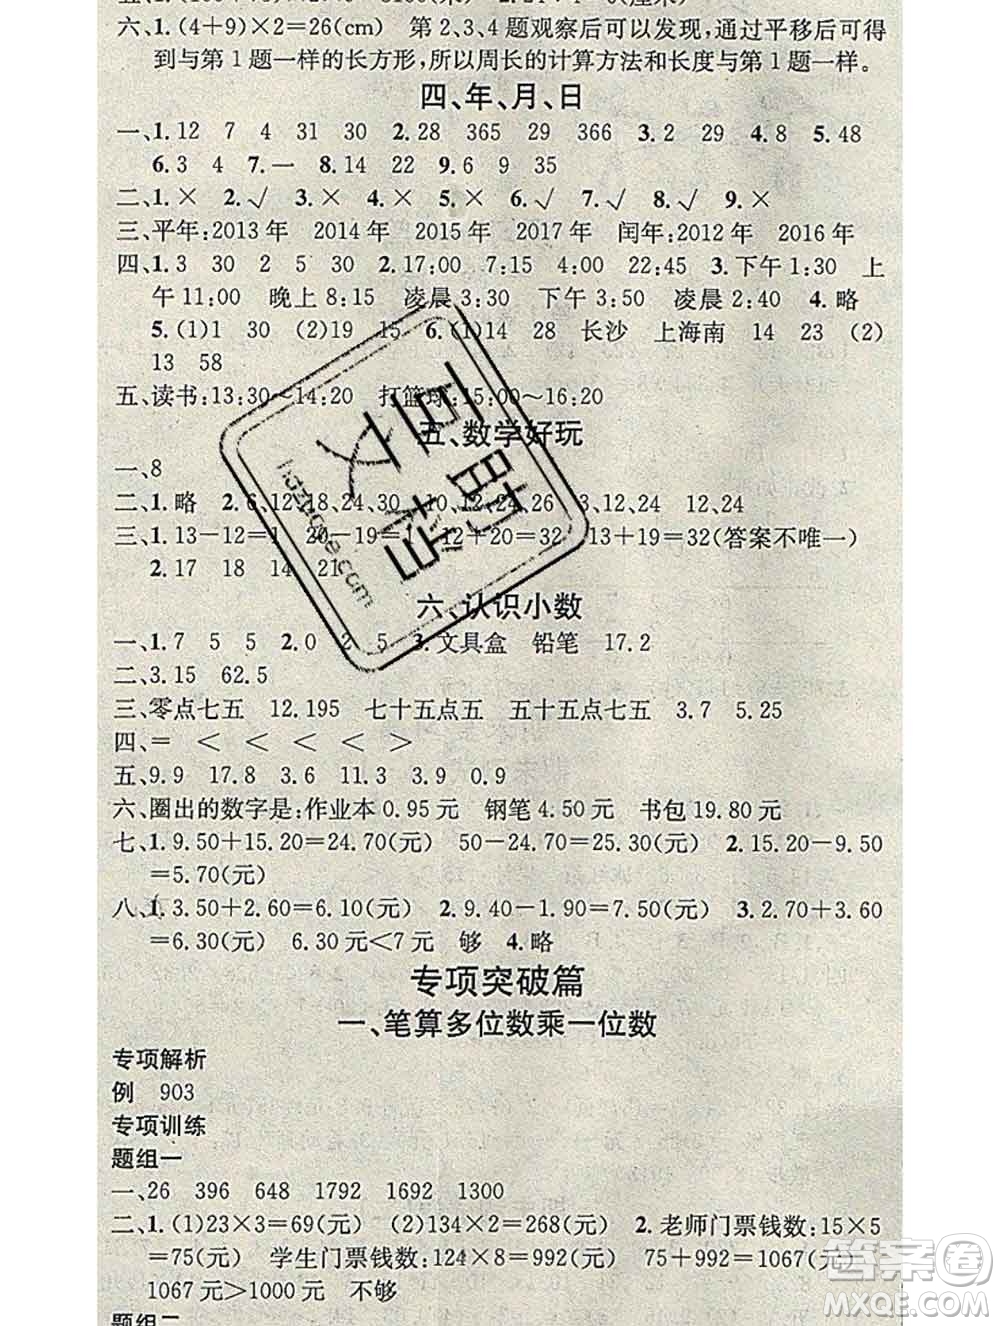 六、1. (4+9)×2=26(cm) 第2、3、4题观察后可以发现,通过平移后可得
到与第1题一样的长方形,所以周长的计算方法和长度与第1题一样。
四、年、月、日
一、1. 12 7 4 31 30 2. 28 365 29 366 3. 2 29 4. 8 5. 48
6. 3 4 7. 一 8. 14 22 9. 6 9 35
二、1. × 2. √ 3. × 4. × 5. √ 6. √ 7. √ 8. √ 9. ×
三、平年:2013年 2014年 2015年 2017年 闰年:2012年 2016年
四、1. 3 30 2 5 30 2. 17:00 7:15 4:00 22:45 3. 下午1:30 上
午11:00 晚上8:15 凌晨3:10 下午3:50 凌晨2:40 4. 略
5. (1)1 30 (2)19 15 6. (1)14 28 长沙 上海南 14 23 (2)
13 58
五、读书:13:30～14:20 打篮球:15:00～16:20
五、数学好玩
一、8
二、1. 略 2. 6,12,18,24,30 10,12,24,26 12,24 12,24
三、1. 13-12=1 20-19=1 12+20=32 13+19=32(答案不唯一)
2. 17 18 14 21
六、认识小数
一、1. 7 5 5 2. 0 2 5 3. 文具盒 铅笔 17.2
二、3.15 62.5
三、零点七五 12.195 七十五点五 五十五点七五 3.7 5.25
四、= < < < < >
五、9.9 17.8 3.6 11.3 3.9 0.9
六、圈出的数字是:作业本0.95元 钢笔4.50元 书包19.80元
七、1. 9.50+15.20=24.70(元) 50-24.70=25.30(元) 2. 15.20-9.50
=5.70(元)
八、1. 3.50+2.60=6.10(元) 2. 9.50-1.90=7.60(元) 3. 2.70+3.60
=6.30(元) 6.30元<7元 够 4. 略
专项突破篇
一、笔算多位数乘一位数
专项解析
例 903
专项训练
题组一
一、26 396 648 1792 1692 1300
二、1. (1)23×3=69(元) (2)134×2=268(元) 2. 老师门票钱数:15×5
=75(元) 学生门票钱数:124×8=992(元) 75+992=1067(元)
1067元>1000元 不够
题组二
答案圈
MXQE.COM